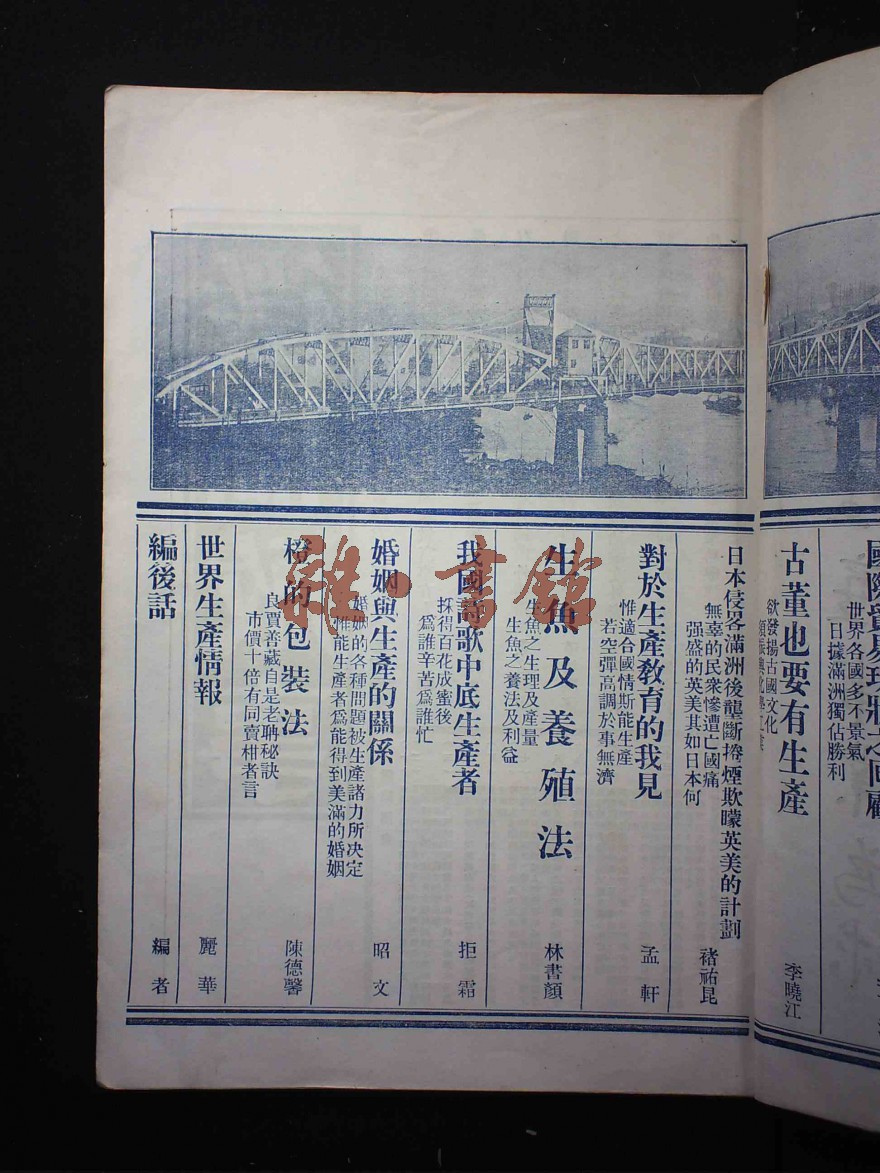 世界各國多不景氣
日據滿洲獨佔勝利
古董也要有生產
欲發揚古國文化
李曉江
日本侵畧滿洲後壟斷捲煙欺矇英美的計劃
無辜的民衆慘遭亡國痛
强盛的英美其如日本何
褚祐昆
對於生產敎育的我見
惟適合國情斯能生產
若空彈高調於事無濟
孟軒
生魚及養殖法
生魚之生理及產量
生魚之養法及利益
林書顏
我國詩歌中底生產者
採得百花成蜜後
爲誰辛苦爲誰忙
拒霜
婚姻與生產的關係
婚姻的各種問題被生產諸力所決定
惟能生產者爲能得到美滿的婚姻
昭文
橙的包裝法
良賈善藏自是老聃秘訣
市價十倍有同賣柑者言
陳德馨
世界生產情報
麗華
編後話
編者
雜·書館